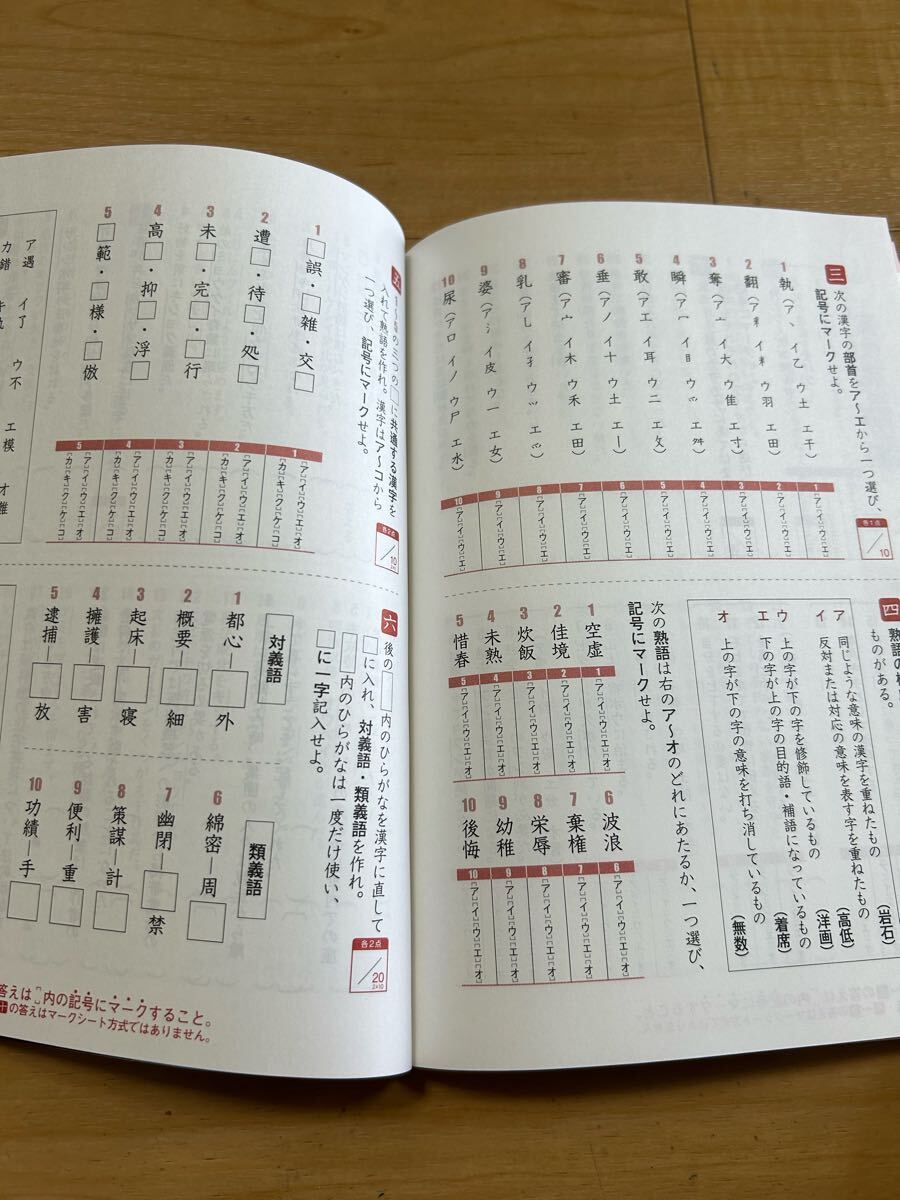 三 次の漢字の部首をア〜エから一つ選び、
記号にマークせよ。
各1点
/10
1 執(ア 丶 イ 乙 ウ 土 エ 干)
2 翻(ア 釆 イ 米 ウ 羽 エ 田)
3 奪(ア 亠 イ 大 ウ 隹 エ 寸)
4 瞬(ア 爫 イ 目 ウ 灬 エ 舛)
5 敢(ア エ イ 耳 ウ 二 エ 攵)
6 垂(ア ノ イ 十 ウ 土 エ 丨)
7 審(ア 宀 イ 木 ウ 禾 エ 田)
8 乳(ア 乚 イ 孚 ウ ⺍ エ 爫)
9 婆(ア 氵 イ 皮 ウ 一 エ 女)
10 尿(ア ロ イ ノ ウ 尸 エ 水)
1 [ア][イ][ウ][エ]
2 [ア][イ][ウ][エ]
3 [ア][イ][ウ][エ]
4 [ア][イ][ウ][エ]
5 [ア][イ][ウ][エ]
6 [ア][イ][ウ][エ]
7 [ア][イ][ウ][エ]
8 [ア][イ][ウ][エ]
9 [ア][イ][ウ][エ]
10 [ア][イ][ウ][エ]
四 熟語の
ものがある。
ア 同じような意味の漢字を重ねたもの(岩石)
イ 反対または対応の意味を表す字を重ねたもの(高低)
ウ 上の字が下の字を修飾しているもの(洋画)
エ 下の字が上の字の目的語・補語になっているもの(着席)
オ 上の字が下の字の意味を打ち消しているもの(無数)
次の熟語は右のア〜オのどれにあたるか、一つ選び、
記号にマークせよ。
1 空虚
2 佳境
3 炊飯
4 未熟
5 惜春
1 [ア][イ][ウ][エ][オ]
2 [ア][イ][ウ][エ][オ]
3 [ア][イ][ウ][エ][オ]
4 [ア][イ][ウ][エ][オ]
5 [ア][イ][ウ][エ][オ]
6 波浪
7 棄権
8 栄辱
9 幼稚
10 後悔
6 [ア][イ][ウ][エ][オ]
7 [ア][イ][ウ][エ][オ]
8 [ア][イ][ウ][エ][オ]
9 [ア][イ][ウ][エ][オ]
10 [ア][イ][ウ][エ][オ]
五 1〜5の三つの□に共通する漢字を
入れて熟語を作れ。漢字はア〜コから
一つ選び、記号にマークせよ。
各2点
/10
1 □誤・□雑・交□
2 遭□・待□・処□
3 未□・完□・□行
4 高□・抑□・浮□
5 □範・□様・□倣
1 [ア][イ][ウ][エ][オ]
[カ][キ][ク][ケ][コ]
2 [ア][イ][ウ][エ][オ]
[カ][キ][ク][ケ][コ]
3 [ア][イ][ウ][エ][オ]
[カ][キ][ク][ケ][コ]
4 [ア][イ][ウ][エ][オ]
[カ][キ][ク][ケ][コ]
5 [ア][イ][ウ][エ][オ]
[カ][キ][ク][ケ][コ]
ア 遇 イ 了 ウ 不 エ 模 オ 難
カ 錯
六 後の□内のひらがなを漢字に直して
□に入れ、対義語・類義語を作れ。
□内のひらがなは一度だけ使い、
□に一字記入せよ。
各2点
/20
2×10
対義語
1 都心―□外
2 概要―□細
3 起床―□寝
4 擁護―□害
5 逮捕―□放
類義語
6 綿密―周□
7 幽閉―□禁
8 策謀―計□
9 便利―重□
10 功績―手□
答えは[ ]内の記号にマークすること。
十の答えはマークシート方式ではありません。